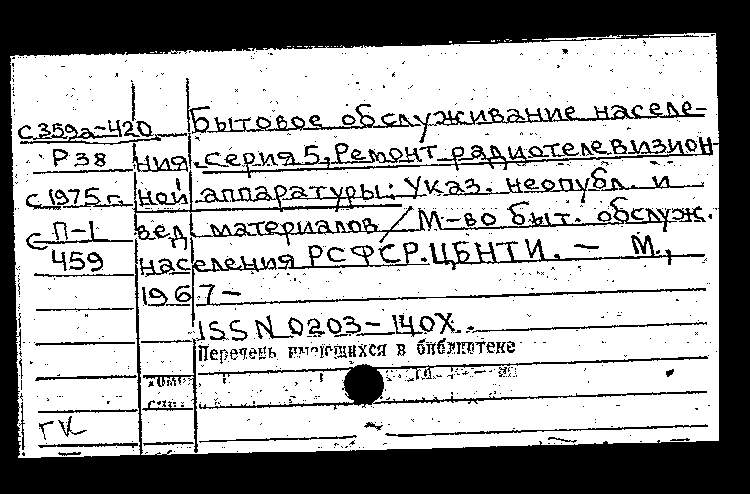 С359а-420 Бытовое обслуживание населе-
Р38 ния. Серия 5, Ремонт радиотелевизион
с 1975 г. ной аппаратуры: Указ. неопубл. и
с П-1 вед материалов / М-во быт. обслуж.
459 населения РСФСР. ЦБНТИ. — М.,
1967-
ISSN 0203-140X.
Перечень имеющихся в библиотеке
ГК